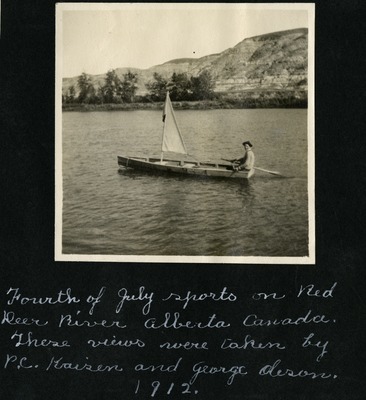 Fourth of July sports on Red
Deer River Alberta Canada.
These views were taken by
P.C. Kaisen and George Oleson.
1912.